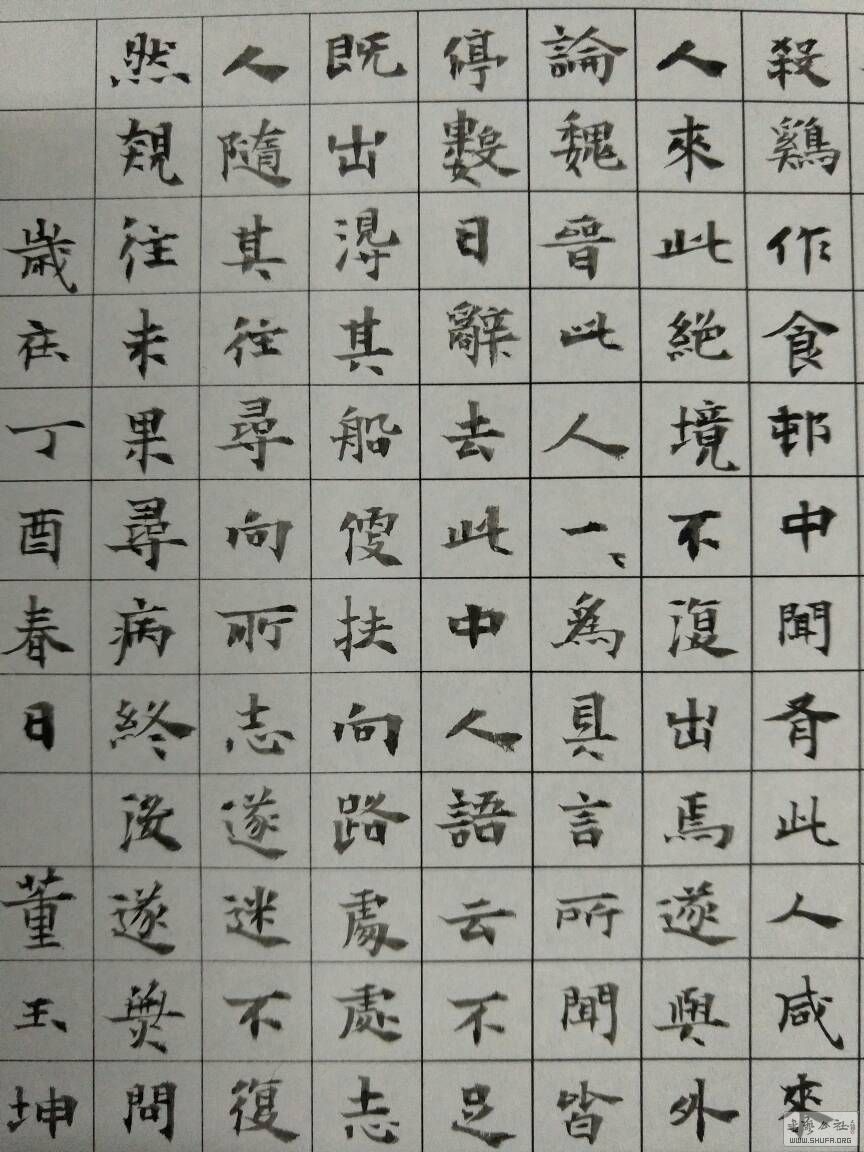 殺鷄作食邨中聞有此人咸來
人來此絕境不復出焉遂與外
論魏晉此人一〻爲具言所聞皆
停數日辭去此中人語云不足
既出得其船便扶向路處處志
人隨其往尋向所志遂迷不復
然規往未果尋病終後遂無問
歲在丁酉春日 董玉坤
WWW.SHUFA.ORG